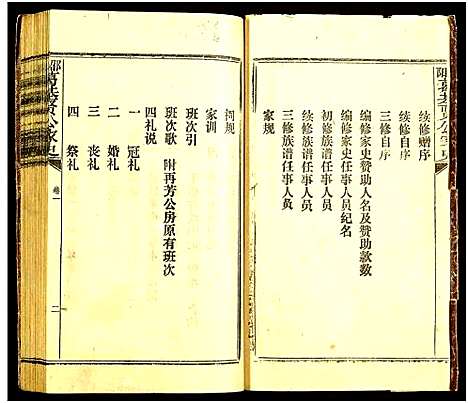 续修赠序
续修自序
三修自序
编修家史赞助人名及赞助款数
编修家史任事人员纪名
初修族谱任事人员
续修族谱任事人员
三修族谱任事人员
家规
祠规
家训
班次引
班次歌 附再芳公房原有班次
四礼说
一 冠礼
二 婚礼
三 丧礼
四 祭礼
卷一
二